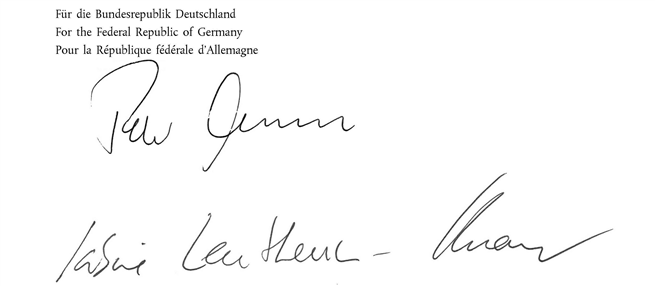 Für die Bundesrepublik Deutschland
For the Federal Republic of Germany
Pour la République fédérale d'Allemagne
Peter
Sabine Leutheuss -